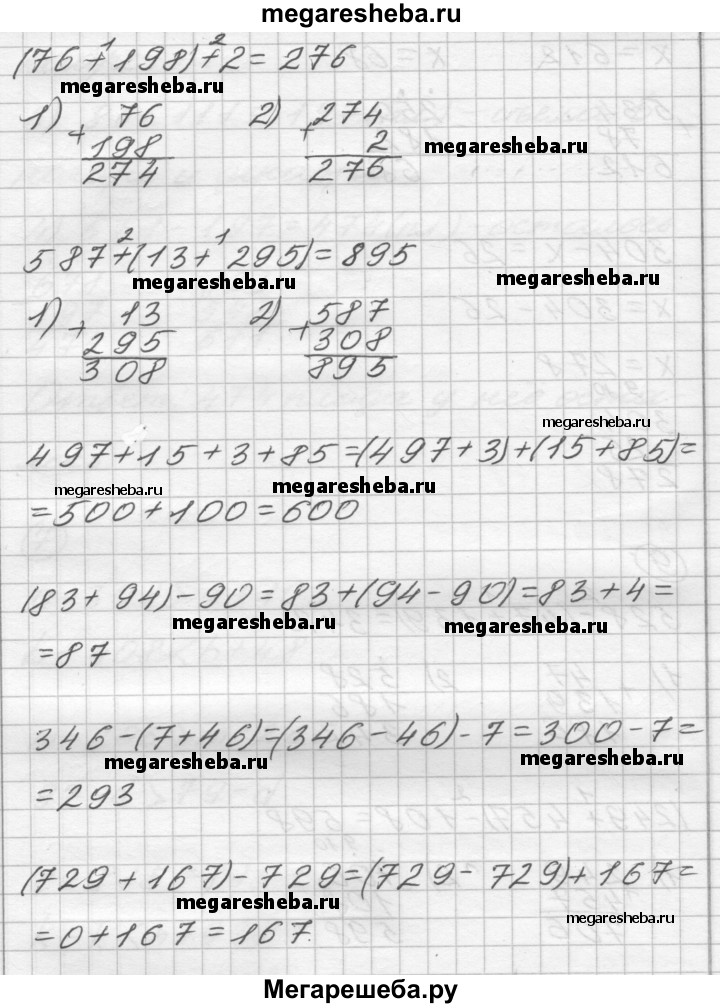 megaresheba.ru
(76 + 198) + 2 = 276
1 2
megaresheba.ru
1) 76 2) 274
+ 198 + 2
274 276
megaresheba.ru
587 + (13 + 295) = 895
2 1
megaresheba.ru megaresheba.ru
1) 13 2) 587
+ 295 + 308
308 895
megaresheba.ru
497 + 15 + 3 + 85 = (497 + 3) + (15 + 85) =
megaresheba.ru megaresheba.ru
= 500 + 100 = 600
(83 + 94) - 90 = 83 + (94 - 90) = 83 + 4 =
megaresheba.ru megaresheba.ru
= 87
346 - (7 + 46) = (346 - 46) - 7 = 300 - 7 =
megaresheba.ru megaresheba.ru
= 293
(729 + 167) - 729 = (729 - 729) + 167 =
megaresheba.ru megaresheba.ru
= 0 + 167 = 167.
Мегарешеба.ру